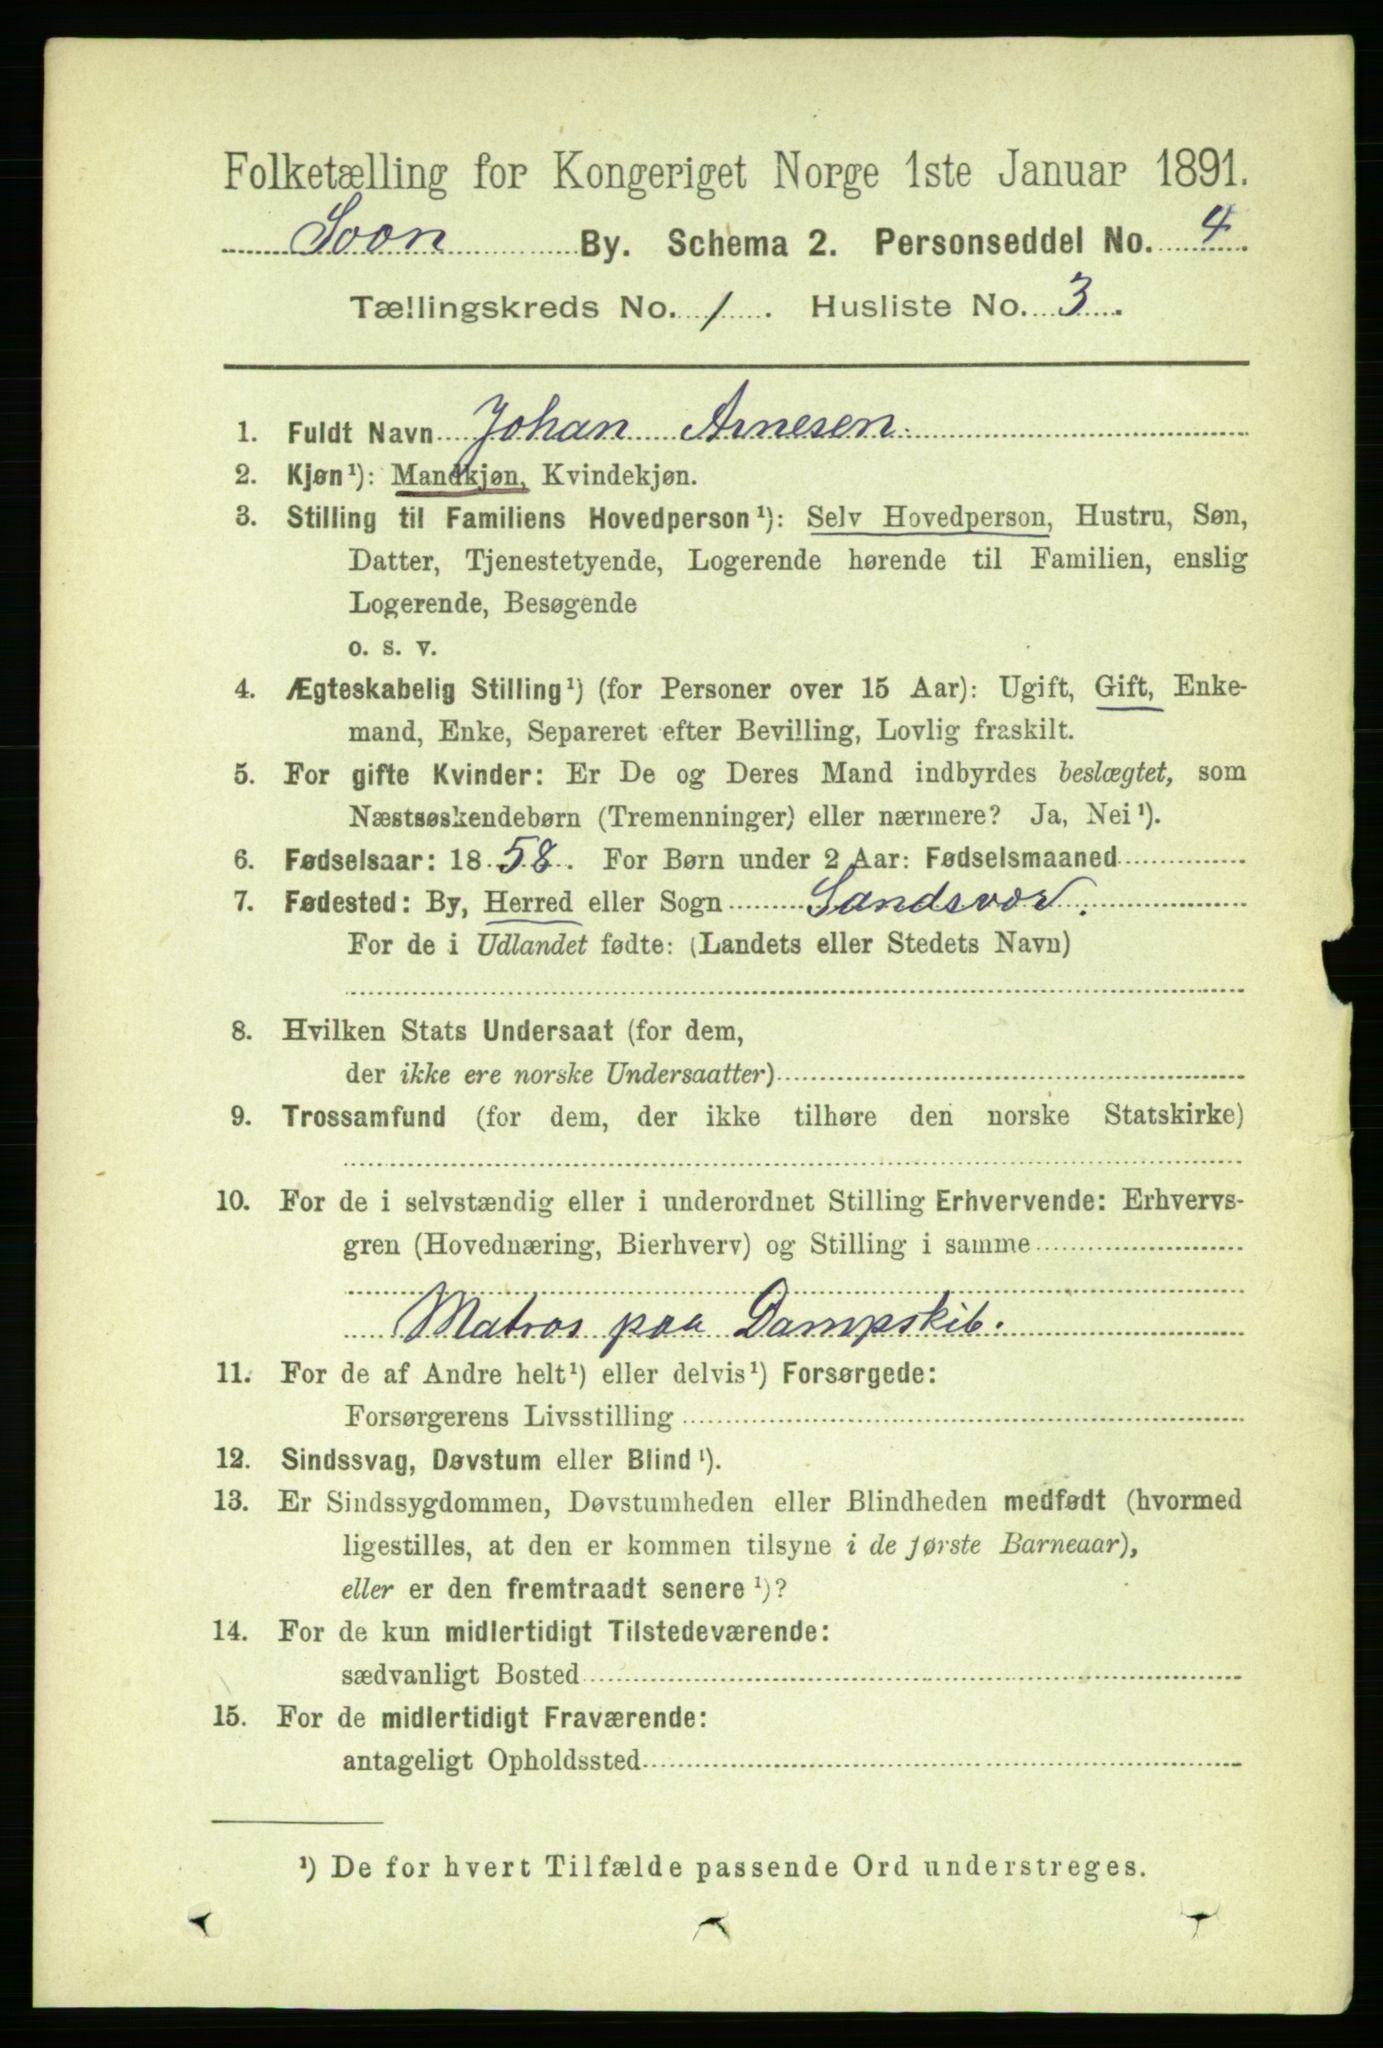 Folketælling for Kongeriget Norge 1ste Januar 1891.
Soon By. Schema 2. Personseddel No. 4.
Tællingskreds No. 1. Husliste No. 3.
1. Fuldt Navn Johan Arnesen.
2. Kjøn¹): Mandkjøn, Kvindekjøn.
3. Stilling til Familiens Hovedperson¹): Selv Hovedperson, Hustru, Søn,
Datter, Tjenestetyende, Logerende hørende til Familien, enslig
Logerende, Besøgende
o. s. v.
4. Ægteskabelig Stilling¹) (for Personer over 15 Aar): Ugift, Gift, Enke-
mand, Enke, Separeret efter Bevilling, Lovlig fraskilt.
5. For gifte Kvinder: Er De og Deres Mand indbyrdes beslægtet, som
Næstsøskendebørn (Tremenninger) eller nærmere? Ja, Nei¹).
6. Fødselsaar: 1858. For Børn under 2 Aar: Fødselsmaaned
7. Fødested: By, Herred eller Sogn Sandsvær.
For de i Udlandet fødte: (Landets eller Stedets Navn)
8. Hvilken Stats Undersaat (for dem,
der ikke ere norske Undersaatter)
9. Trossamfund (for dem, der ikke tilhøre den norske Statskirke)
10. For de i selvstændig eller i underordnet Stilling Erhvervende: Erhvervs-
gren (Hovednæring, Bierhverv) og Stilling i samme
Matros paa Dampskib.
11. For de af Andre helt¹) eller delvis¹) Forsørgede:
Forsørgerens Livsstilling
12. Sindssvag, Døvstum eller Blind¹).
13. Er Sindssygdommen, Døvstumheden eller Blindheden medfødt (hvormed
ligestilles, at den er kommen tilsyne i de første Barneaar),
eller er den fremtraadt senere¹)?
14. For de kun midlertidigt Tilstedeværende:
sædvanligt Bosted
15. For de midlertidigt Fraværende:
antageligt Opholdssted
¹) De for hvert Tilfælde passende Ord understreges.